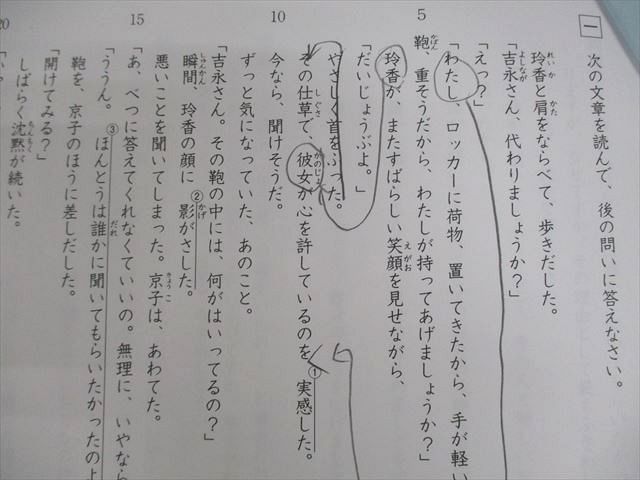 一
次の文章を読んで、後の問いに答えなさい。
玲香と肩をならべて、歩きだした。
「吉永さん、代わりましょうか？」
「えっ？」
「わたし、ロッカーに荷物、置いてきたから、手が軽い
鞄、重そうだから、わたしが持ってあげましょうか？」
玲香が、またすばらしい笑顔を見せながら、
「だいじょうぶよ。」
やさしく首をふった。
その仕草で、彼女が心を許しているのを、①実感した。
今なら、聞けそうだ。
ずっと気になっていた、あのこと。
「吉永さん。その鞄の中には、何がはいってるの？」
瞬間、玲香の顔に②影がさした。
悪いことを聞いてしまった。京子は、あわてた。
「あ、べつに答えてくれなくていいの。無理に、いやなら
「ううん。③ほんとうは誰かに聞いてもらいたかったのよ
鞄を、京子のほうに差しだした。
「開けてみる？」
しばらく沈黙が続いた。
5
10
15
20